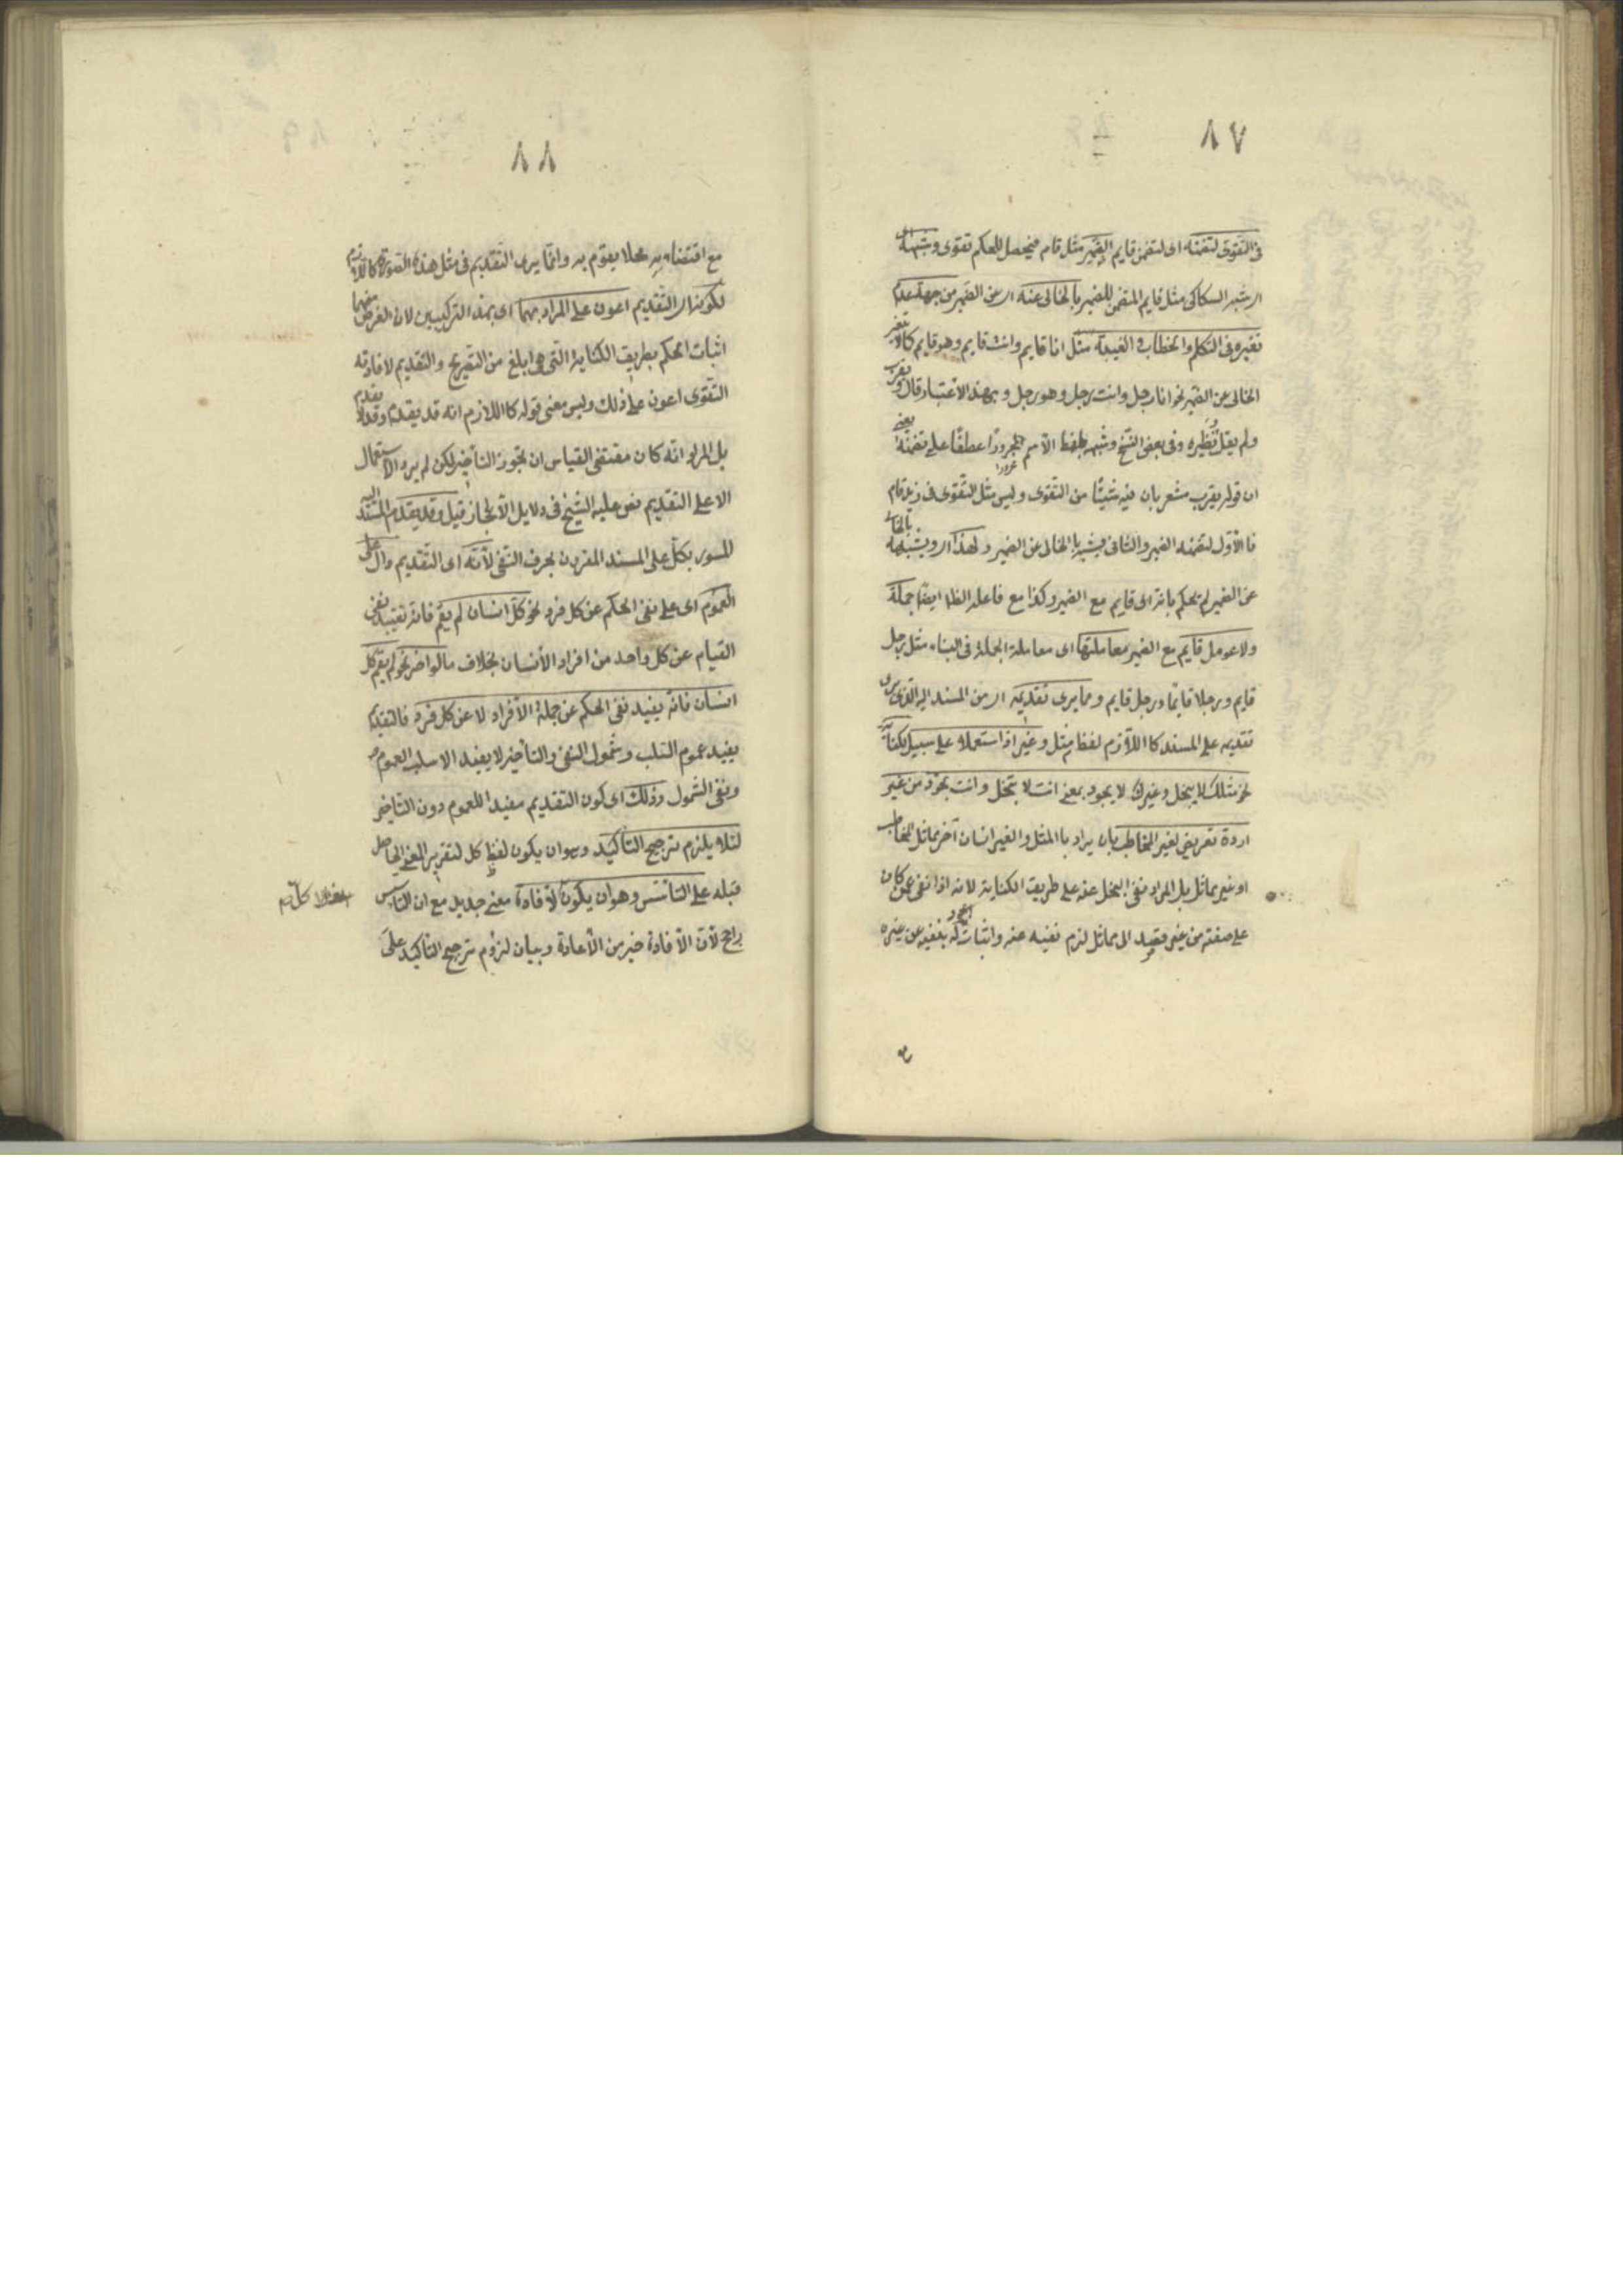 ٨٧
فى التقوى لتضمنه اى لتضمن قايم الضمير مثل قام فيحصل للحكم تقوى وشبهه اى
اى شبه السكاكى مثل قايم المتضمن للضمير بالخالى عنه اى عن الضمير من جهة عدم
تغيره فى التكلم والخطاب والغيبة مثل انا قايم وانت قايم وهو قايم كما لا يتغير
الخالى عن الضمير نحو انا رجل وانت رجل وهو رجل وبهذا الاعتبار قال ويقرب
ولم يقل نظيره وفى بعض النسخ وشبهه بلفظ الاسم مجرورا عطفا على تضمنه يعنى
ان قوله يقرب مشعر بان فيه شيئا من التقوى وليس مثل التقوى فى زيد قام
فالاول لتضمنه الضمير والثانى لشبهه بالخالى عن الضمير ولهذا اى ولشبهه بالخالى
عن الضمير لم يحكم بانه اى قايم مع الضمير وكذا مع فاعله الظاهر ايضا جملة
ولا عومل قايم مع الضمير معاملتها اى معاملة الجملة فى البناء مثل رجل
قايم ورجلا قايما ورجل قايم ومما يرى تقديمه اى من المسند اليه الذى يرى
تقديمه على المسند كا اللازم لفظ مثل وغير اذا استعملا على سبيل الكناية
نحو مثلك لا يبخل وغيرك لا يجود بمعنى انت لا تبخل وانت تجود من غير
اردة تعريض لغير المخاطب بان يراد با المثل والغير انسان آخر مماثل للمخاطب
او غير مماثل بل المراد نفى البخل عنه على طريق الكناية لانه اذا نفى عمن كان
على صفته من غير قصد الى مماثل لزم نفيه عنه واثبات الجود له بنفيه عن غيره
٨٨
مع اقتضائه محلا يقوم به وانما يرى التقديم فى مثل هذه الصورة كاللازم
لكونه اى التقديم اعون على المراد بهما اى بهذا التركيبين لان الغرض منهما
اثبات الحكم بطريق الكناية التى هى ابلغ من التصريح والتقديم لافادته
التقوى اعون على ذلك وليس معنى قوله كا اللازم انه قد يقدم وقد لا يقدم
بل المراد انه كان مقتضى القياس ان يجوز التأخير لكن لم يرد الاستعمال
الا على التقديم نص عليه الشيخ فى دلايل الاعجاز قيل وقد يقدم المسند اليه
المسور بكل على المسند المقرون بحرف النفى لانه اى التقديم دال على
العموم اى على نفى الحكم عن كل فرد نحو كل انسان لم يقم فانه يفيد نفى
القيام عن كل واحد من افراد الانسان بخلاف ما لو اخر نحو لم يقم كل
انسان فانه يفيد نفى الحكم عن جملة الافراد لا عن كل فرد فالتقديم
يفيد عموم السلب وشمول النفى والتأخير لا يفيد الا سلب العموم
ونفى الشمول وذلك اى كون التقديم مفيدا للعموم دون التأخير
لئلا يلزم ترجيح التأكيد وهو ان يكون لفظ كل لتقرير المعنى الحاصل
قبله على التأسيس وهو ان يكون لافادة معنى جديد مع ان التأسيس
راجح لان الافادة خير من الاعادة وبيان لزوم ترجيح التأكيد على